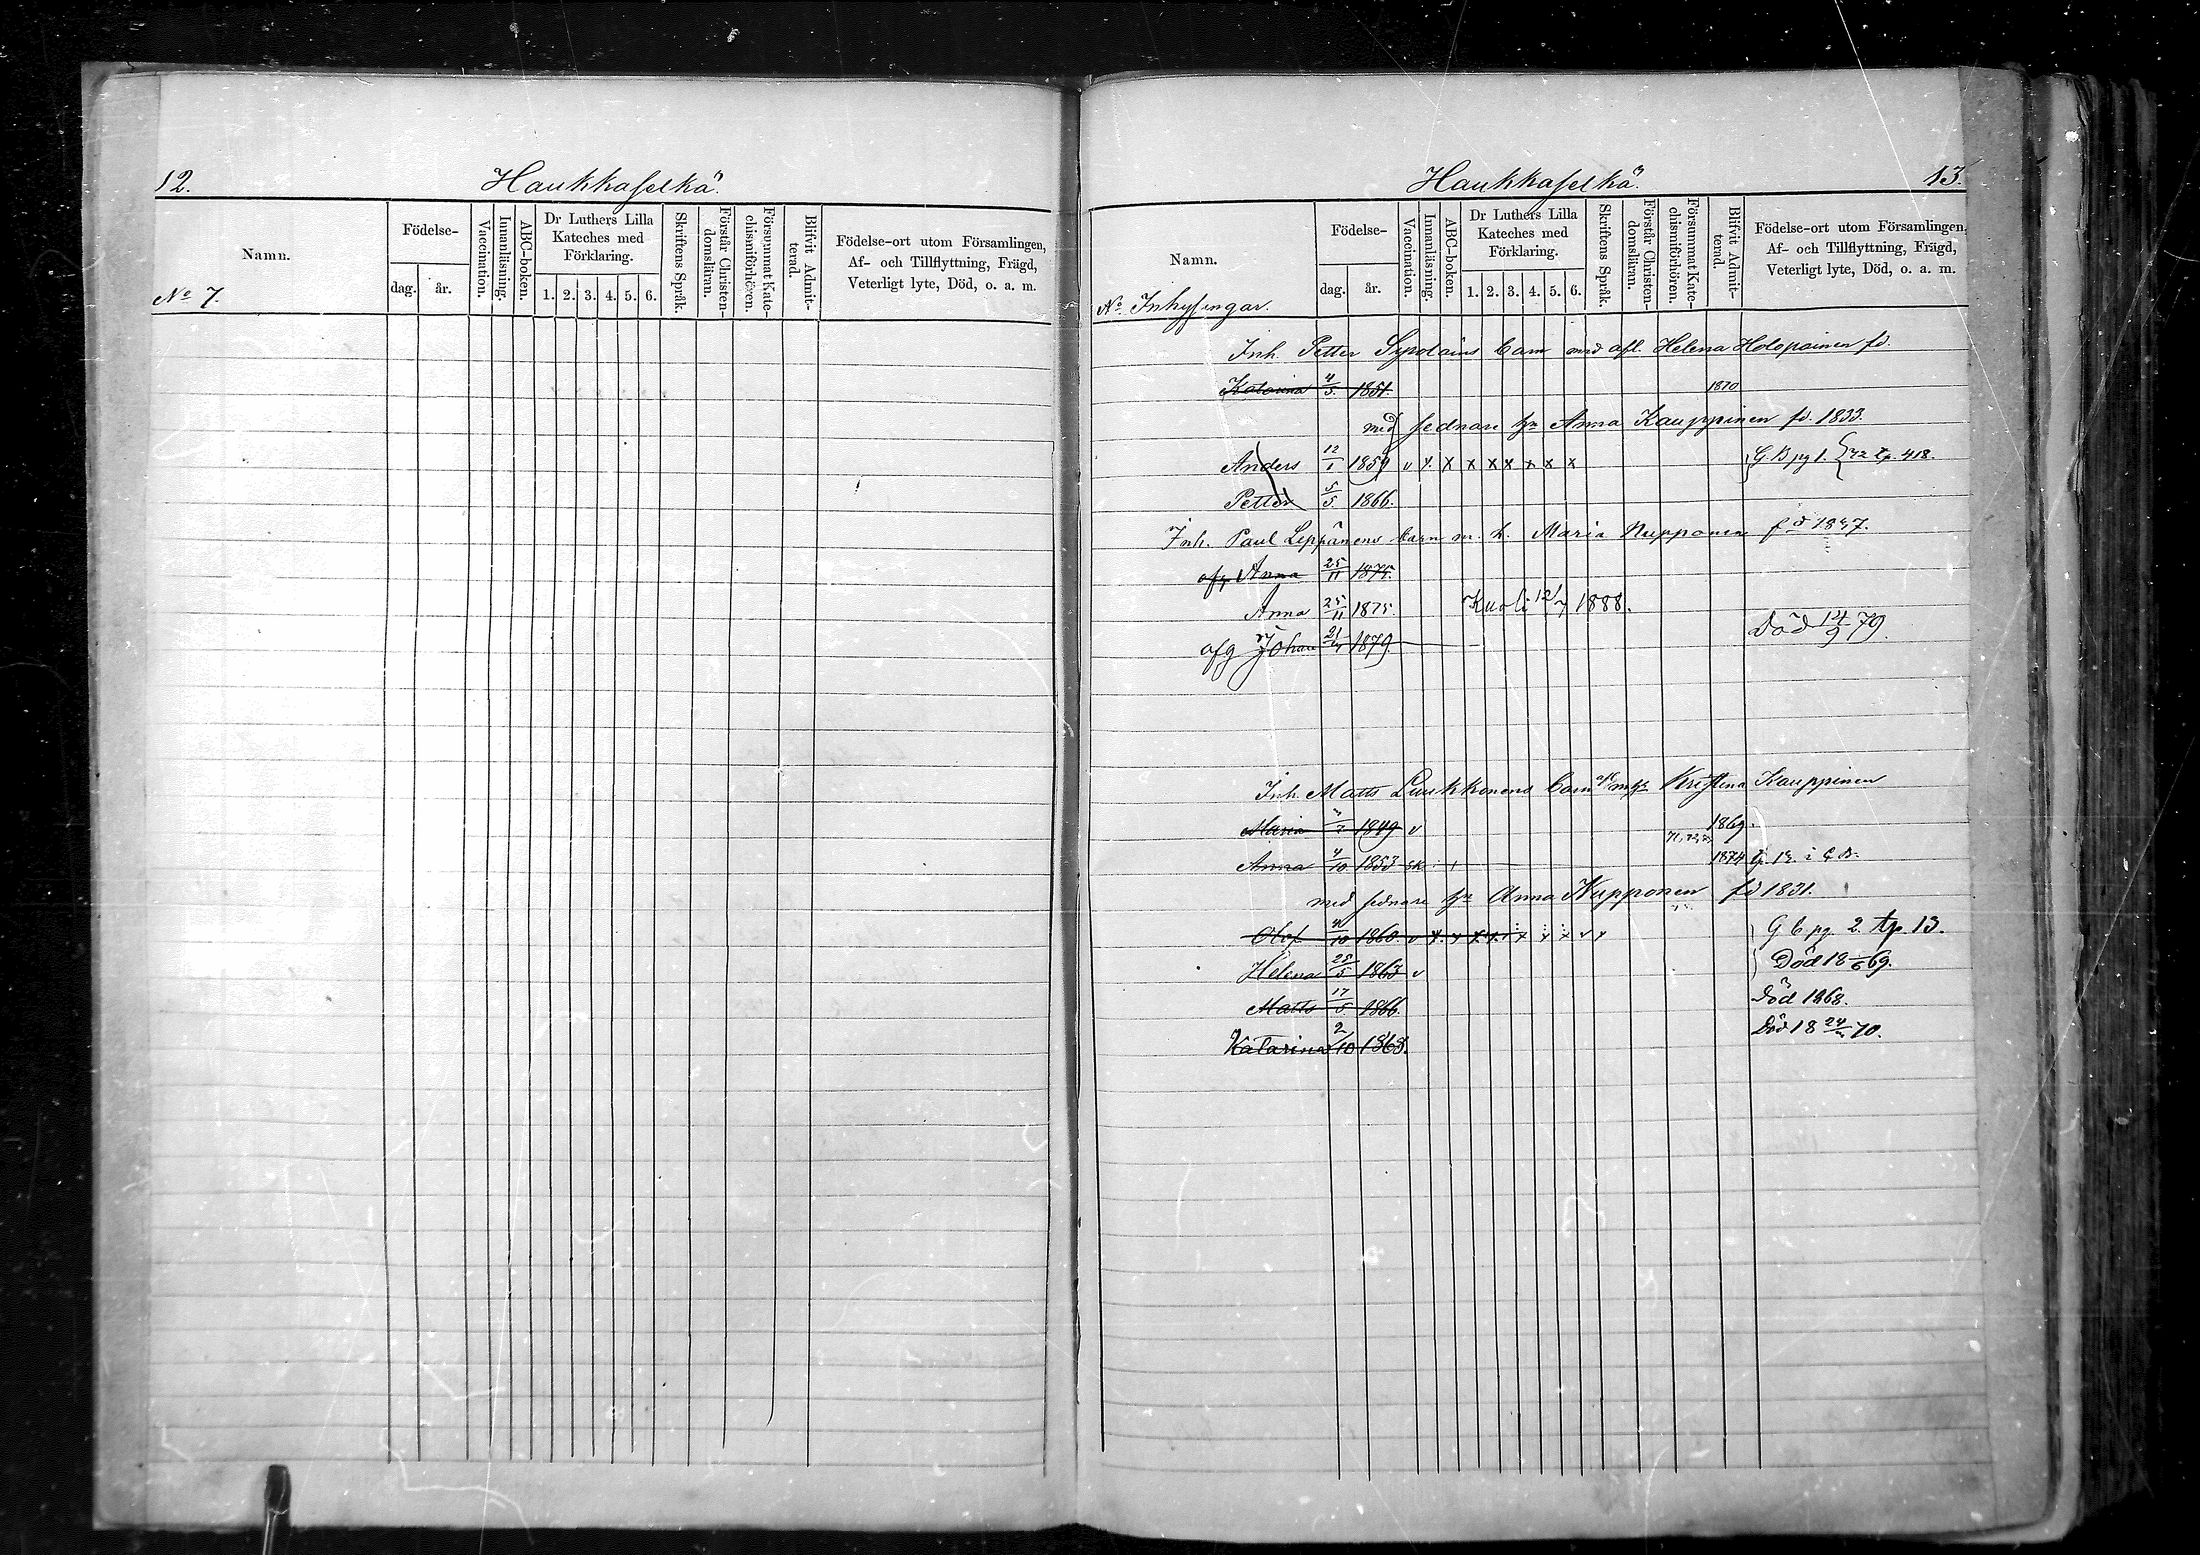 12.
Haukkaselkä.
Namn.
Födelse-
dag. år.
Vaccination.
Innanläsning.
ABC-boken.
Dr Luthers Lilla
Kateches med
Förklaring.
1. 2. 3. 4. 5. 6.
Skriftens Språk.
Förstår Christen-
domsläran.
Försummat Kate-
chismiförhören.
Blifvit Admit-
terad.
Födelse-ort utom Församlingen,
Af- och Tillflyttning, Frägd,
Veterligt lyte, Död, o. a. m.
No 7.
Haukkaselkä.
13.
Namn.
Födelse-
dag. år.
Vaccination.
Innanläsning.
ABC-boken.
Dr Luthers Lilla
Kateches med
Förklaring.
1. 2. 3. 4. 5. 6.
Skriftens Språk.
Förstår Christen-
domsläran.
Försummat Kate-
chismiförhören.
Blifvit Admit-
terad.
Födelse-ort utom Församlingen,
Af- och Tillflyttning, Frägd,
Veterligt lyte, Död, o. a. m.
No Inhysingar.
Inh. Petter barn med afl. Helena Holopainen fd.
Katarina 4/5 1851. 1870
med sednare hr Anna Kauppinen fd. 1833.
Anders 12/1 1859 v x x x x x x x x G. B pg 1. 72 tp. 418.
Petter 5/5 1866.
Inh. Paul Leppänens barn m. h. Maria Nupponen fd 1847.
Anna 25/11 1875.
Anna 25/11 1875. Kuoli 12/7 1888.
Johan 1879. Död 14/9 79.
Inh. Matts Luukkonens barn Kristina Kauppinen
Maria 1849 v 1869.
Anna 4/10 1853 1874
med sednare hr Anna Nupponen fd 1831.
Olof 1860 v x x x x x x x v x G b pg. 2. tp. 13.
Helena 25/5 1863 v Död 18 69.
Matts 17/5 1866. Död 1868.
Katarina 2/10 1868. Död 18 70.